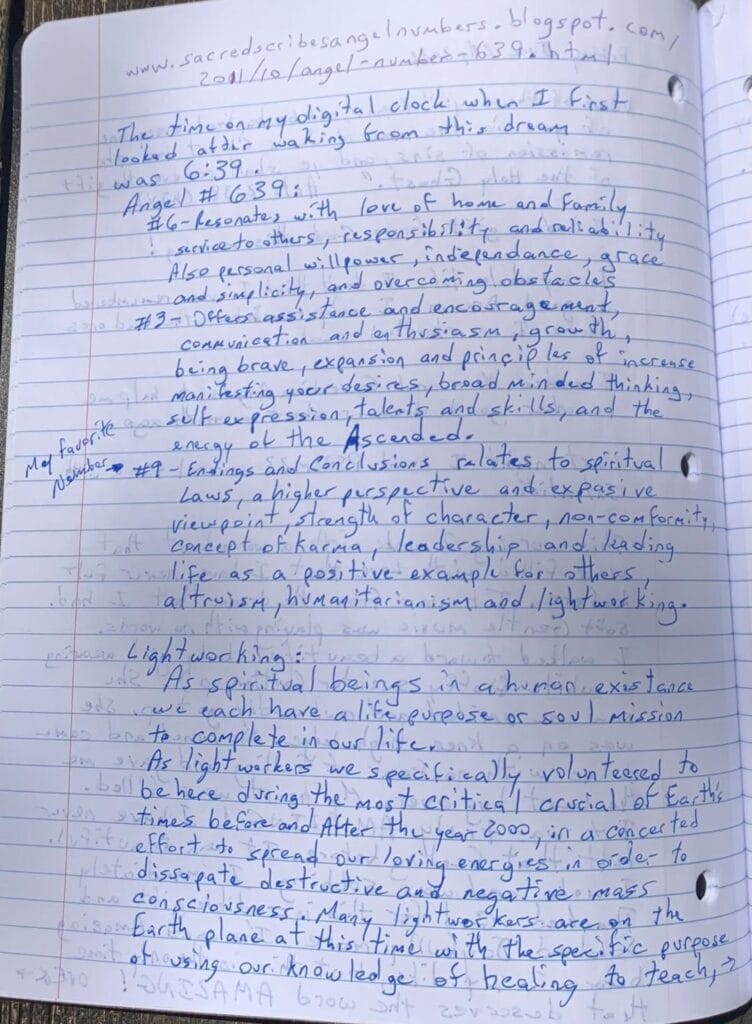 www.sacredscribesangelnumbers.blogspot.com/
2011/10/angel-number-639.html
The time on my digital clock when I first
looked after waking from this dream
was 6:39.
Angel # 639:
#6-Resonates with love of home and family
service to others, responsibility and reliability
Also personal willpower, independance, grace
and simplicity, and overcoming obstacles
#3-Offers assistance and encouragement,
communication and enthusiasm, growth,
being brave, expansion and principles of increase
manifesting your desires, broad minded thinking,
self expression, talents and skills, and the
energy of the Ascended.
My favorite
Number → #9-Endings and Conclusions relates to spiritual
Laws, a higher perspective and expasive
viewpoint, strength of character, non-comformity,
concept of karma, leadership and leading
life as a positive example for others,
altruism, humanitarianism and lightworking.
Lightworking:
As spiritual beings in a human existance
we each have a life purpose or soul mission
to complete in our life.
As lightworkers we specifically volunteered to
be here during the most critical crucial of Earth's
times before and After the year 2000, in a concerted
effort to spread our loving energies in order to
dissapate destructive and negative mass
consciousness. Many lightworkers are on the
Earth plane at this time with the specific purpose
of using our knowledge of healing to teach, →